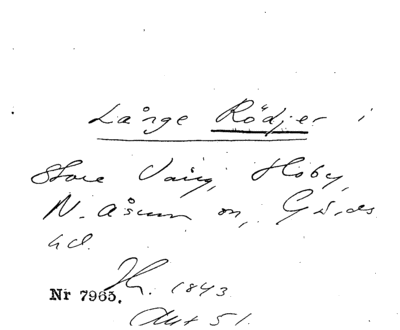 Långe Rödjer i
Store Vång, Hoby,
N. Åsum sn, Gärds
hd.
Nr 7965. 1843
Akt 51.